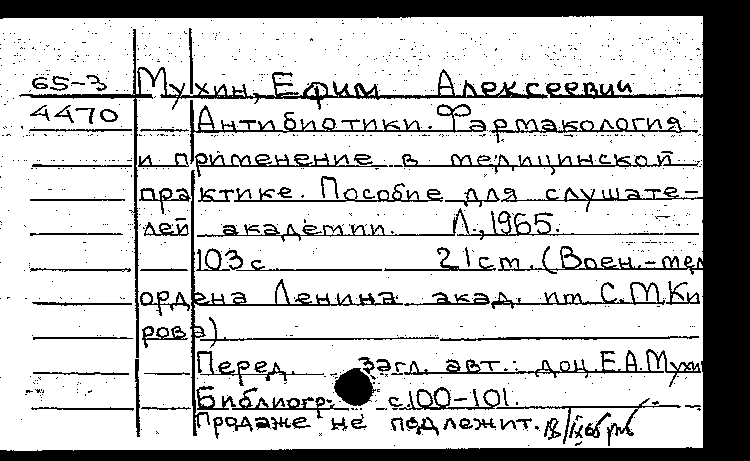 65-3 Мухин, Ефим Алексеевич
4470 Антибиотики. Фармакология
и применение в медицинской
практике. Пособие для слушате-
лей академии. Л., 1965.
103 с 21 см. (Воен.-мед
ордена Ленина акад. им С.М.Ки-
рова)
Перед. загл. авт.: доц Е.А.Мухин
Библиогр: с.100-101.
Продаже не подлежит.